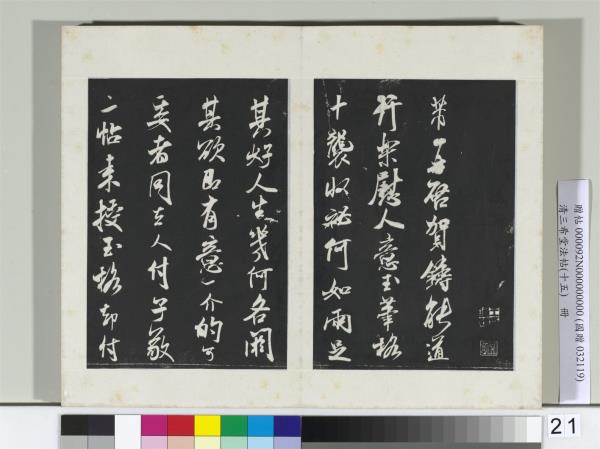 芾再啓賀鑄能道
行樂慰人意玉筆格
十襲收祕何如兩足
其好人生幾何各闕
其欲即有意一介的可
委者同去人付子敬
二帖來授玉格却付
贈帖 000092N000000000 (國贈 032119)
清三希堂法帖(十五) 冊
21